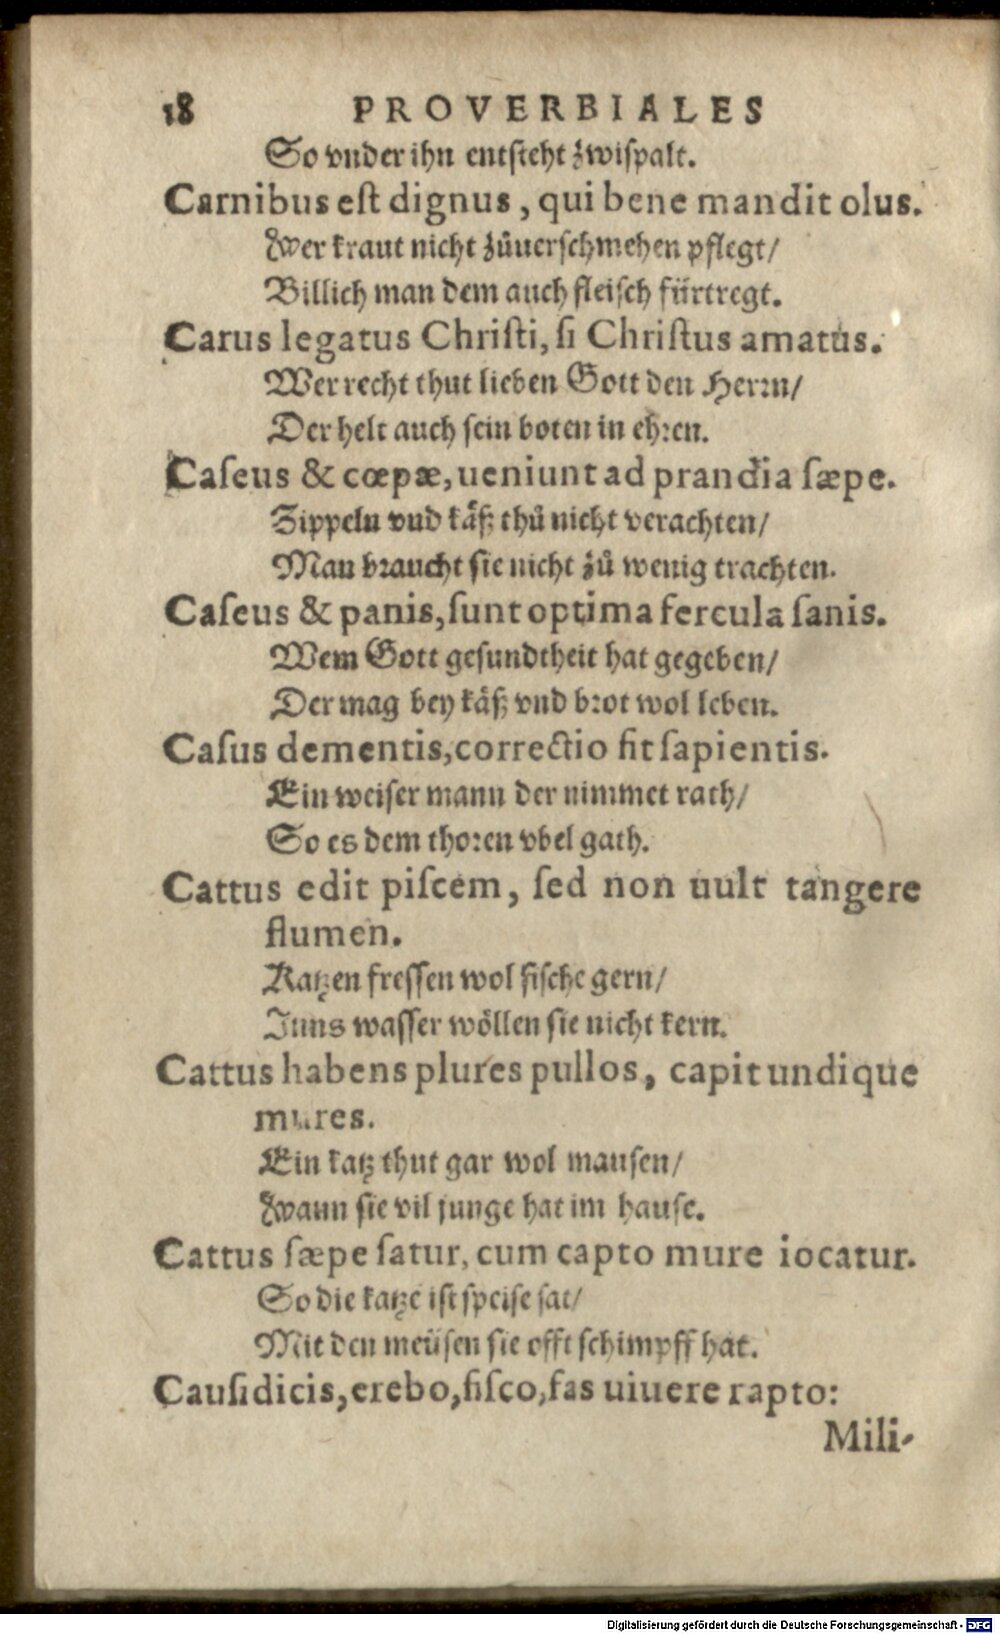 18 PROVERBIALES
So vnder ihn entsteht zwispalt.
Carnibus est dignus, qui bene mandit olus.
Wer kraut nicht zůuerschmehen pflegt/
Billich man dem auch fleisch fürtregt.
Carus legatus Christi, si Christus amatus.
Wer recht thut lieben Gott den Herrn/
Der helt auch sein boten in ehren.
Caseus & cœpæ, ueniunt ad prandia sæpe.
Zippeln vnd käß thů nicht verachten/
Man braucht sie nicht zů wenig trachten.
Caseus & panis, sunt optima fercula sanis.
Wem Gott gesundtheit hat gegeben/
Der mag bey käß vnd brot wol leben.
Casus dementis, correctio fit sapientis.
Ein weiser mann der nimmet rath/
So es dem thoren vbel gath.
Cattus edit piscem, sed non uult tangere
flumen.
Katzen fressen wol fische gern/
Inns wasser wöllen sie nicht kern.
Cattus habens plures pullos, capit undique
mures.
Ein katz thut gar wol mausen/
Wann sie vil junge hat im hause.
Cattus sæpe satur, cum capto mure iocatur.
So die katze ist speise sat/
Mit den meüsen sie offt schimpff hat.
Causidicis, erebo, fisco, fas uiuere rapto:
Mili-
Digitalisierung gefördert durch die Deutsche Forschungsgemeinschaft - DFG